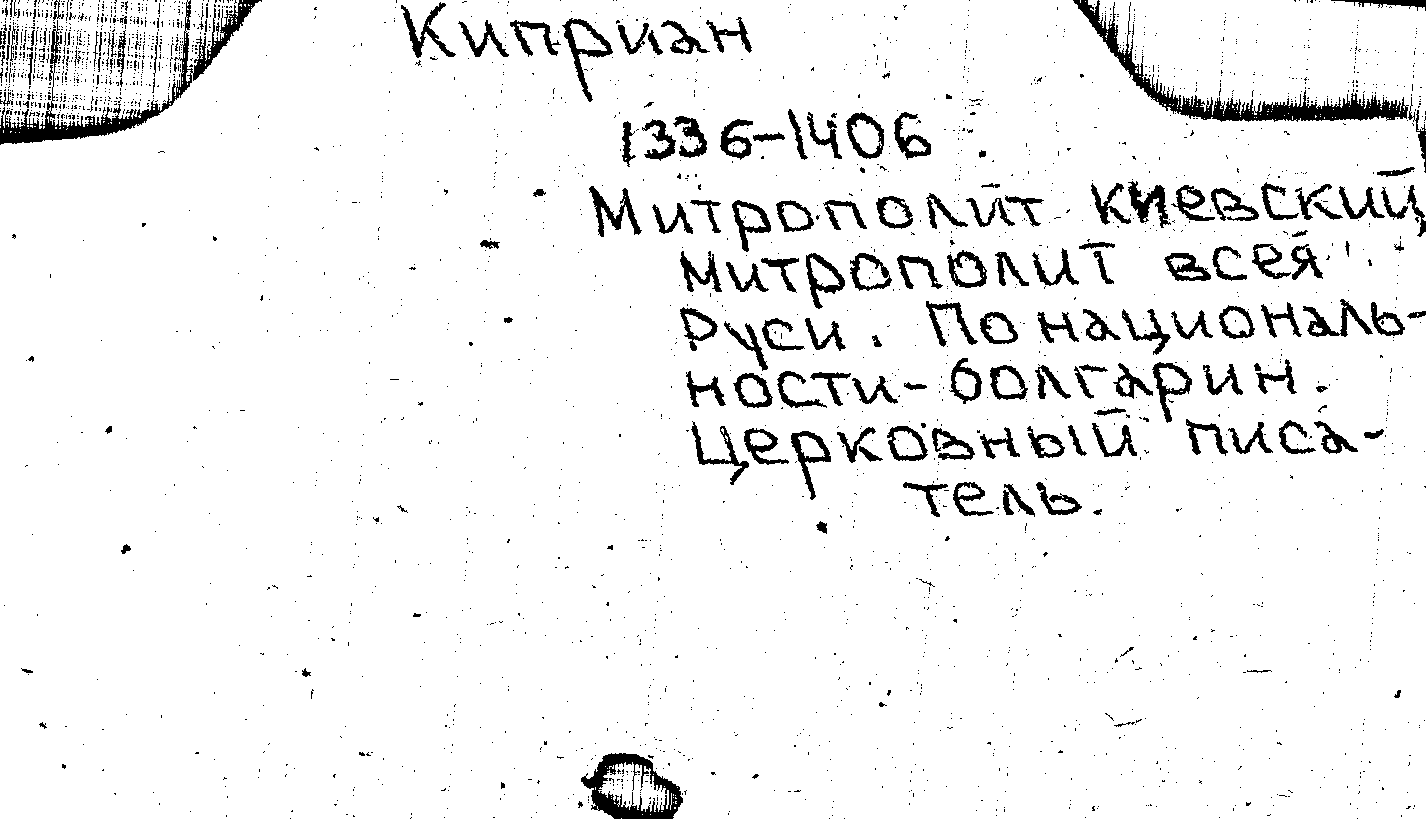 Киприан
1336-1406
Митрополит киевский,
митрополит всея
Руси. По националь-
ности - болгарин.
Церковный писа-
тель.